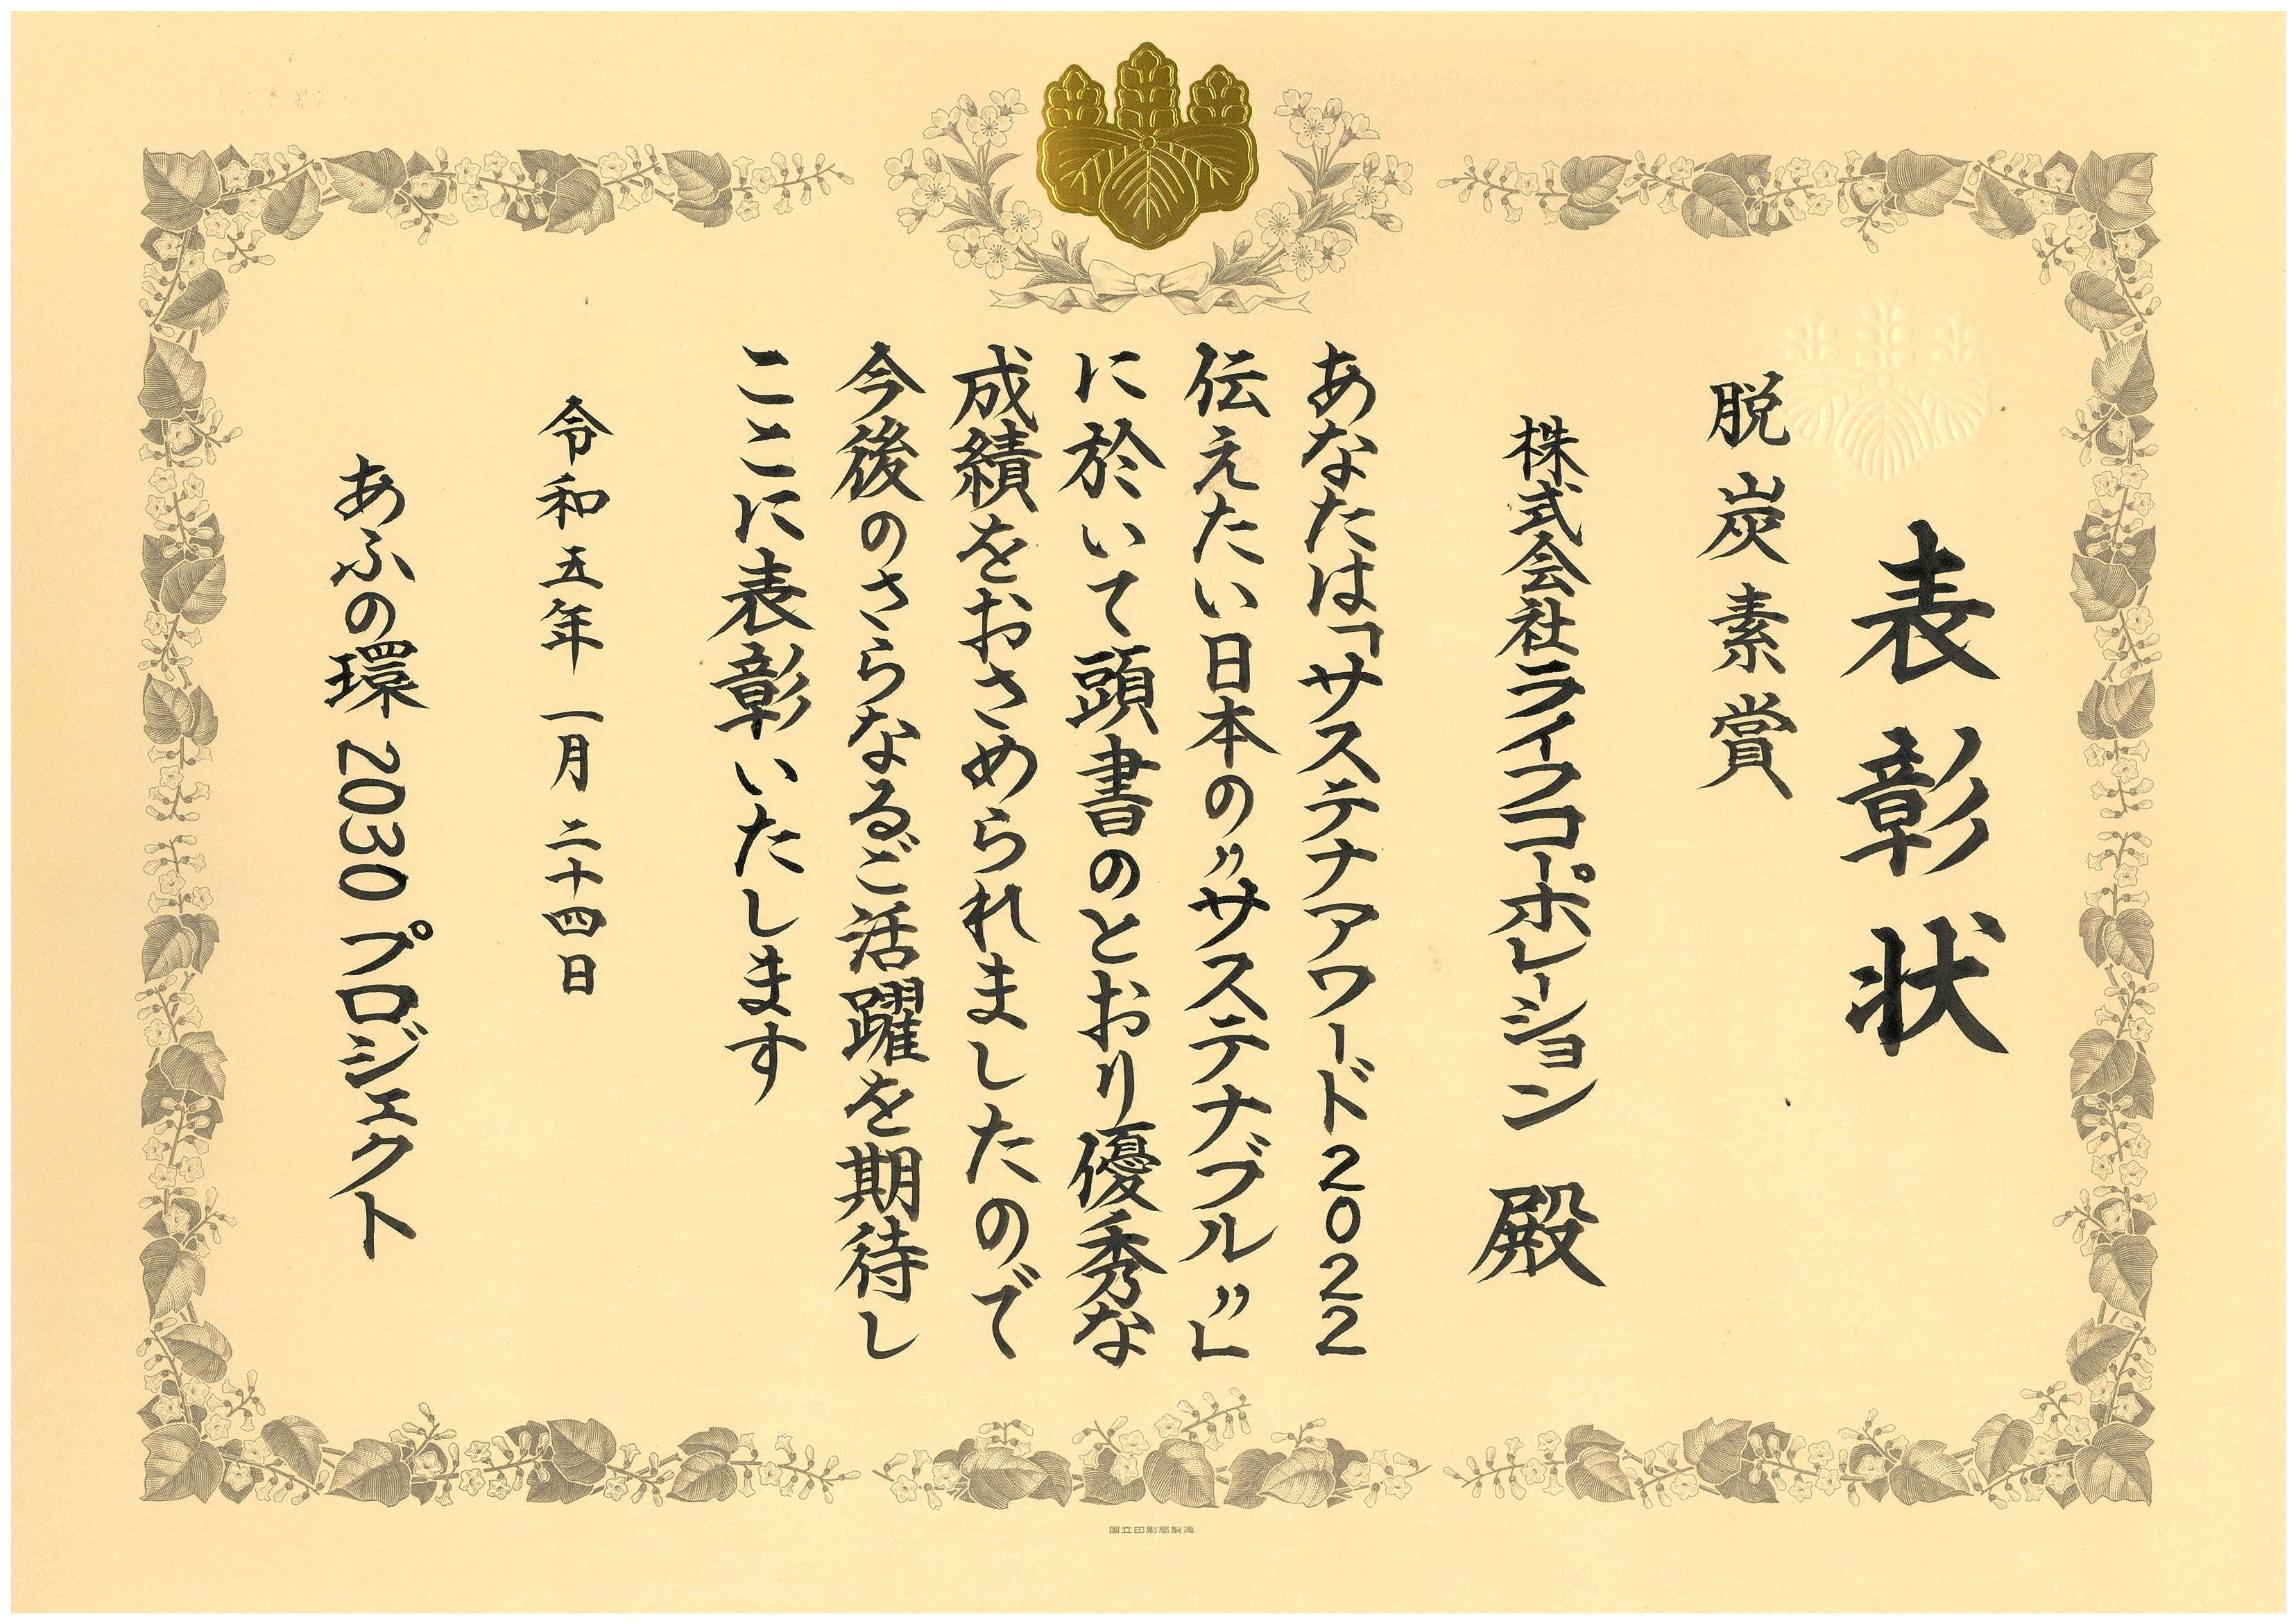 表彰状
脱炭素賞
株式会社ライフコーポレーション 殿
あなたは「サステナアワード2022
伝えたい日本の〝サステナブル〟」
に於いて頭書のとおり優秀な
成績をおさめられましたので
今後のさらなるご活躍を期待し
ここに表彰いたします
令和五年一月二十四日
あふの環2030プロジェクト
国立印刷局製造